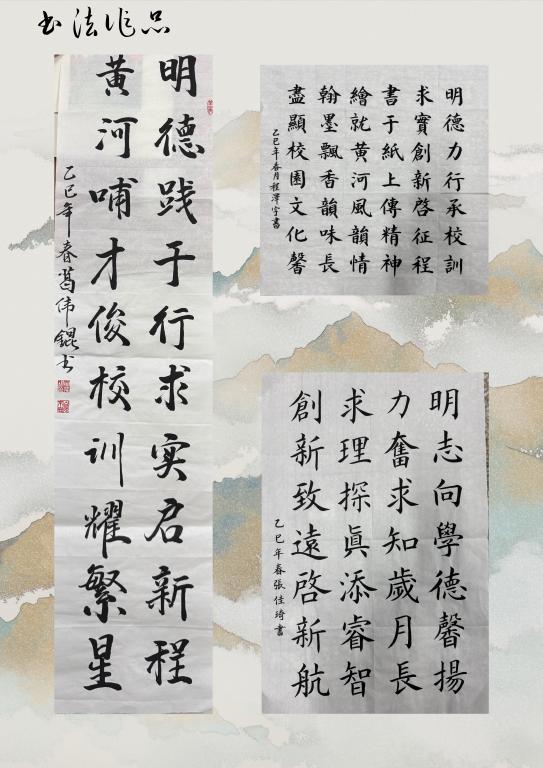 书法作品
明德践于行求实启新程
黄河哺才俊校训耀繁星
乙巳年春葛伟锟书
明德力行承校訓
求實創新啓征程
書于紙上傳精神
繪就黄河風韻情
翰墨飄香韻味長
盡顯校園文化馨
乙巳年春月程澤宇書
明志向學德馨揚
力奮求知歲月長
求理探眞添睿智
創新致遠啓新航
乙巳年春張佳琦書